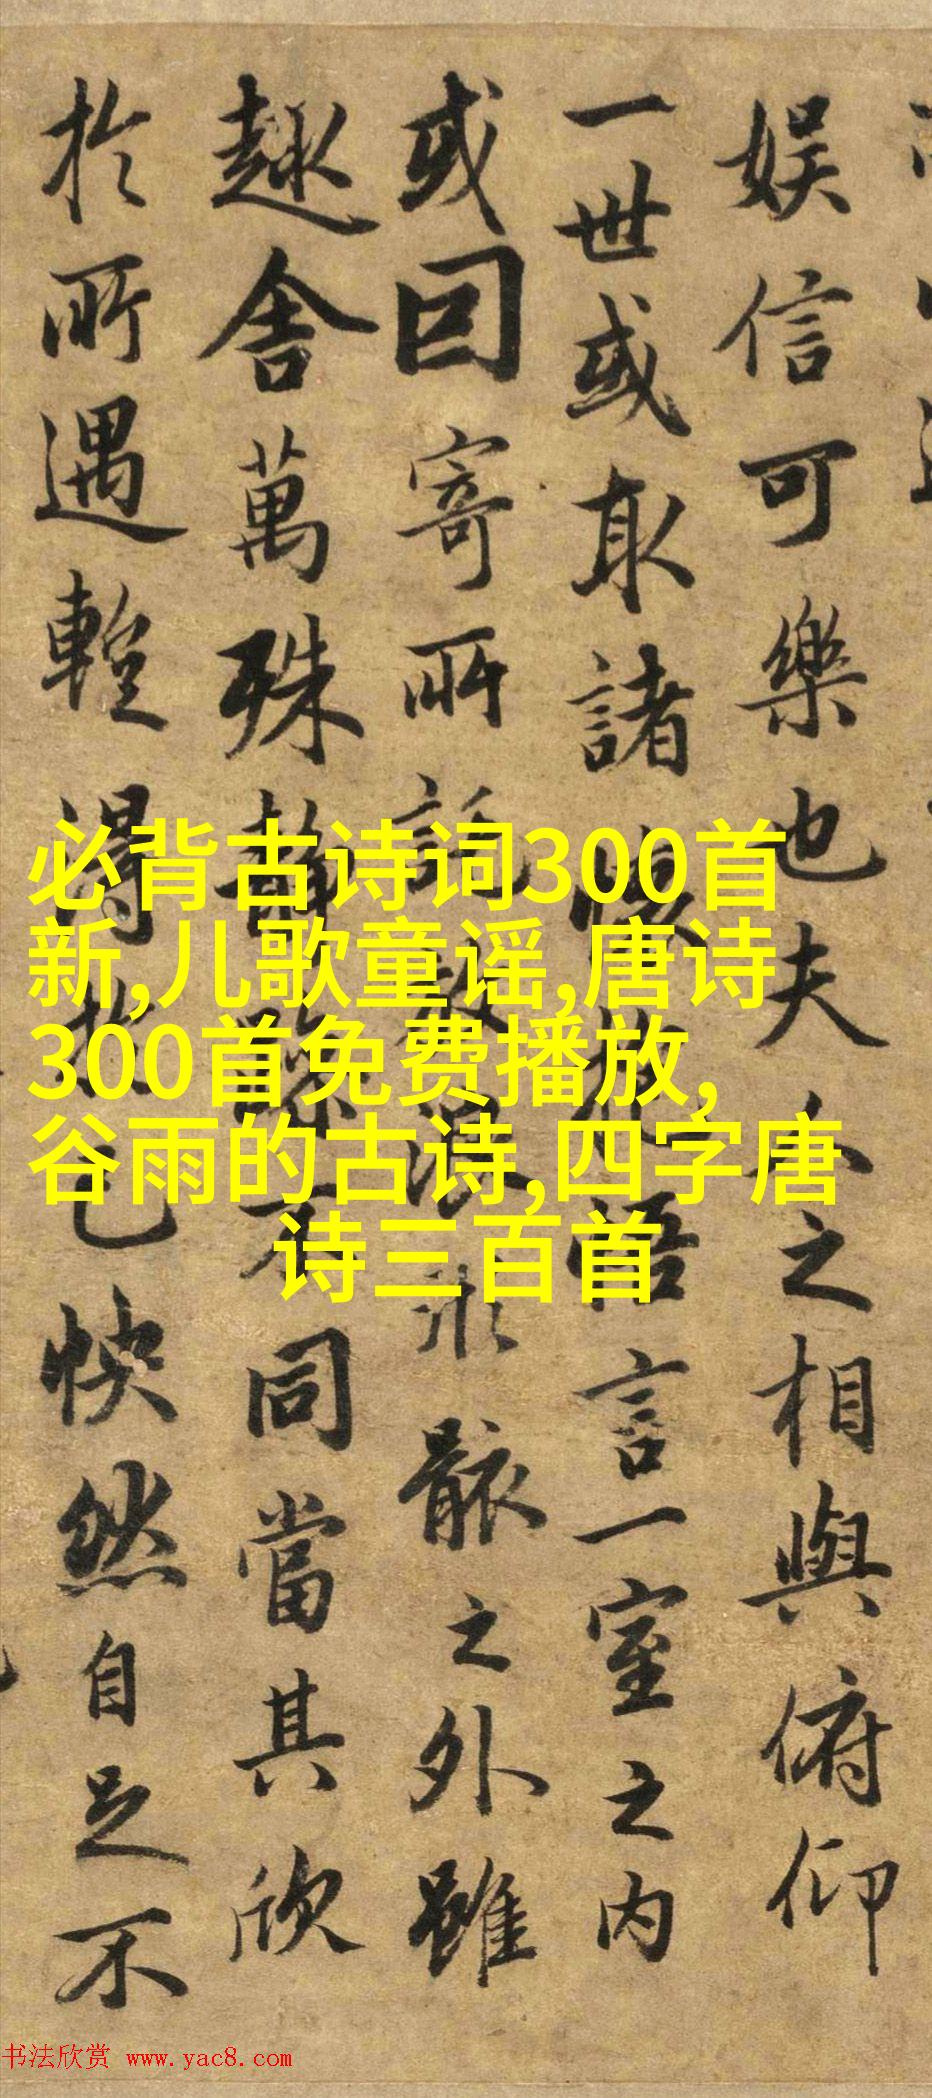 娱信可樂也夫人之相與俯仰
一世或取諸懷抱悟言一室之内
或因寄所託放浪形骸之外雖
趣舍萬殊静躁不同當其欣
於所遇 得於己快然自足不
必背古诗词300首
新,儿歌童谣,唐诗
300首免费播放,
谷雨的古诗,四字唐
诗三百首
书法欣赏 www.yac8.com